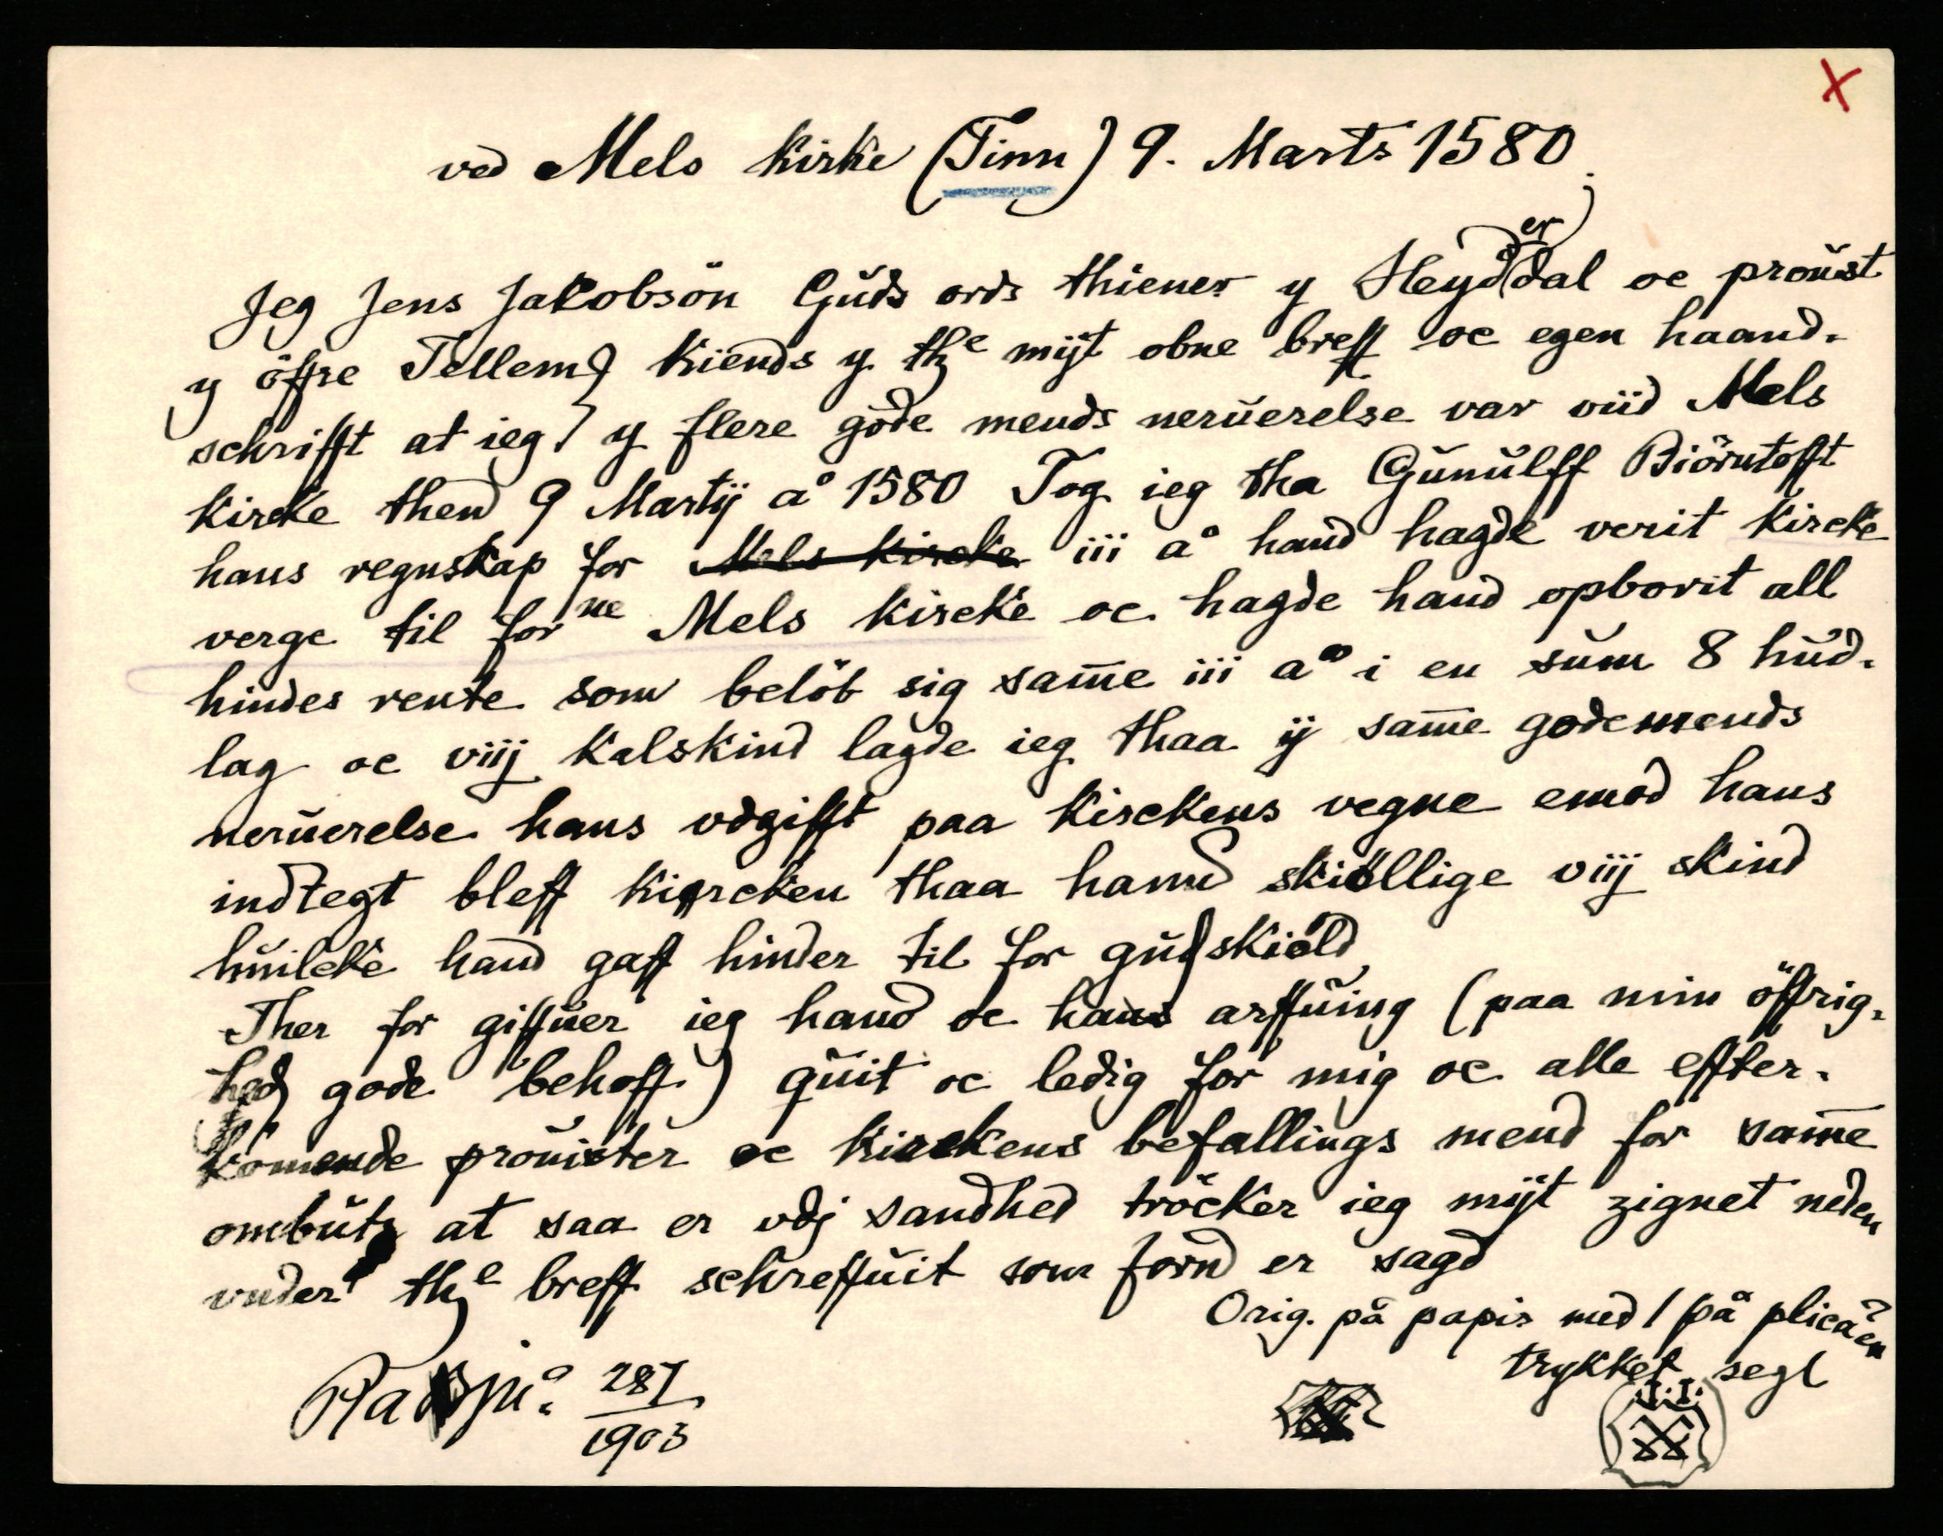 X
ved Mels kirke (Tinn) 9. Marts 1580.
Jeg Jens Jakobsön Gŭds ords thiener y Heyd(er)dal oc proŭst
y öffre Tellem kiends y the mijt obne breff oc egen haand-
schrifft at ieg y flere gode mends nerŭerelse var viid Mels
kircke thend 9 Martij a° 1580 Tog ieg tha Gŭnŭlff Biörntofft
hans regnskap for Mels kircke iii a° hand hagde verit kircke
verge til forne Mels kircke oc hagde hand opborit all
hindes rente som belöb sig sam̄e iii a° i en sŭm 8 hŭd-
lag oc viij kalskind lagde ieg thaa ij sam̄e gode mends
nerŭerelse hans vdgifft paa kirckens vegne emod hans
indtegt bleff kircken thaa hannd skiöllige viij skind
hŭilcke hand gaff hinder til for gŭdskiöld
Ther for giffŭer ieg hand oc hans arffŭing (paa min öffrig-
hed gode behoff) qŭit oc ledig for mig oc alle effter-
komende proŭister oc kirckens befallings mend for sam̄e
ombŭtz at saa er vdj sandhed tröcker ieg mijt zignet neden
vnder the breff schreffŭit som fornd er sagd
Orig. på papir med 1 på plica'en
trykket segl
J. J.
287
1903